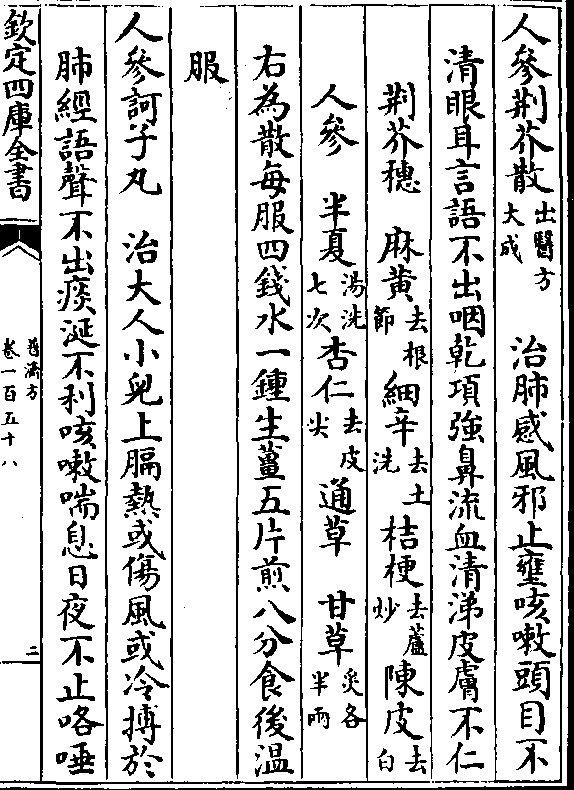 人參荆芥散出醫方大成　治肺感風邪止壅咳嗽頭目不
清眼耳言語不出咽乾項強鼻流血清涕皮膚不仁
荆芥穗　麻黄去根節　細辛去土洗　桔梗去蘆炒　陳皮去白
人參　半夏湯洗七次　杏仁去皮尖　通草　甘草炙各半兩
右為散每服四錢水一鍾生薑五片煎八分食後温
服
人參訶子丸　治大人小兒上膈熱或傷風或冷搏於
肺經語聲不出痰涎不利咳嗽喘息日夜不止咯唾
欽定四庫全書
普濟方
卷一百五十八
二